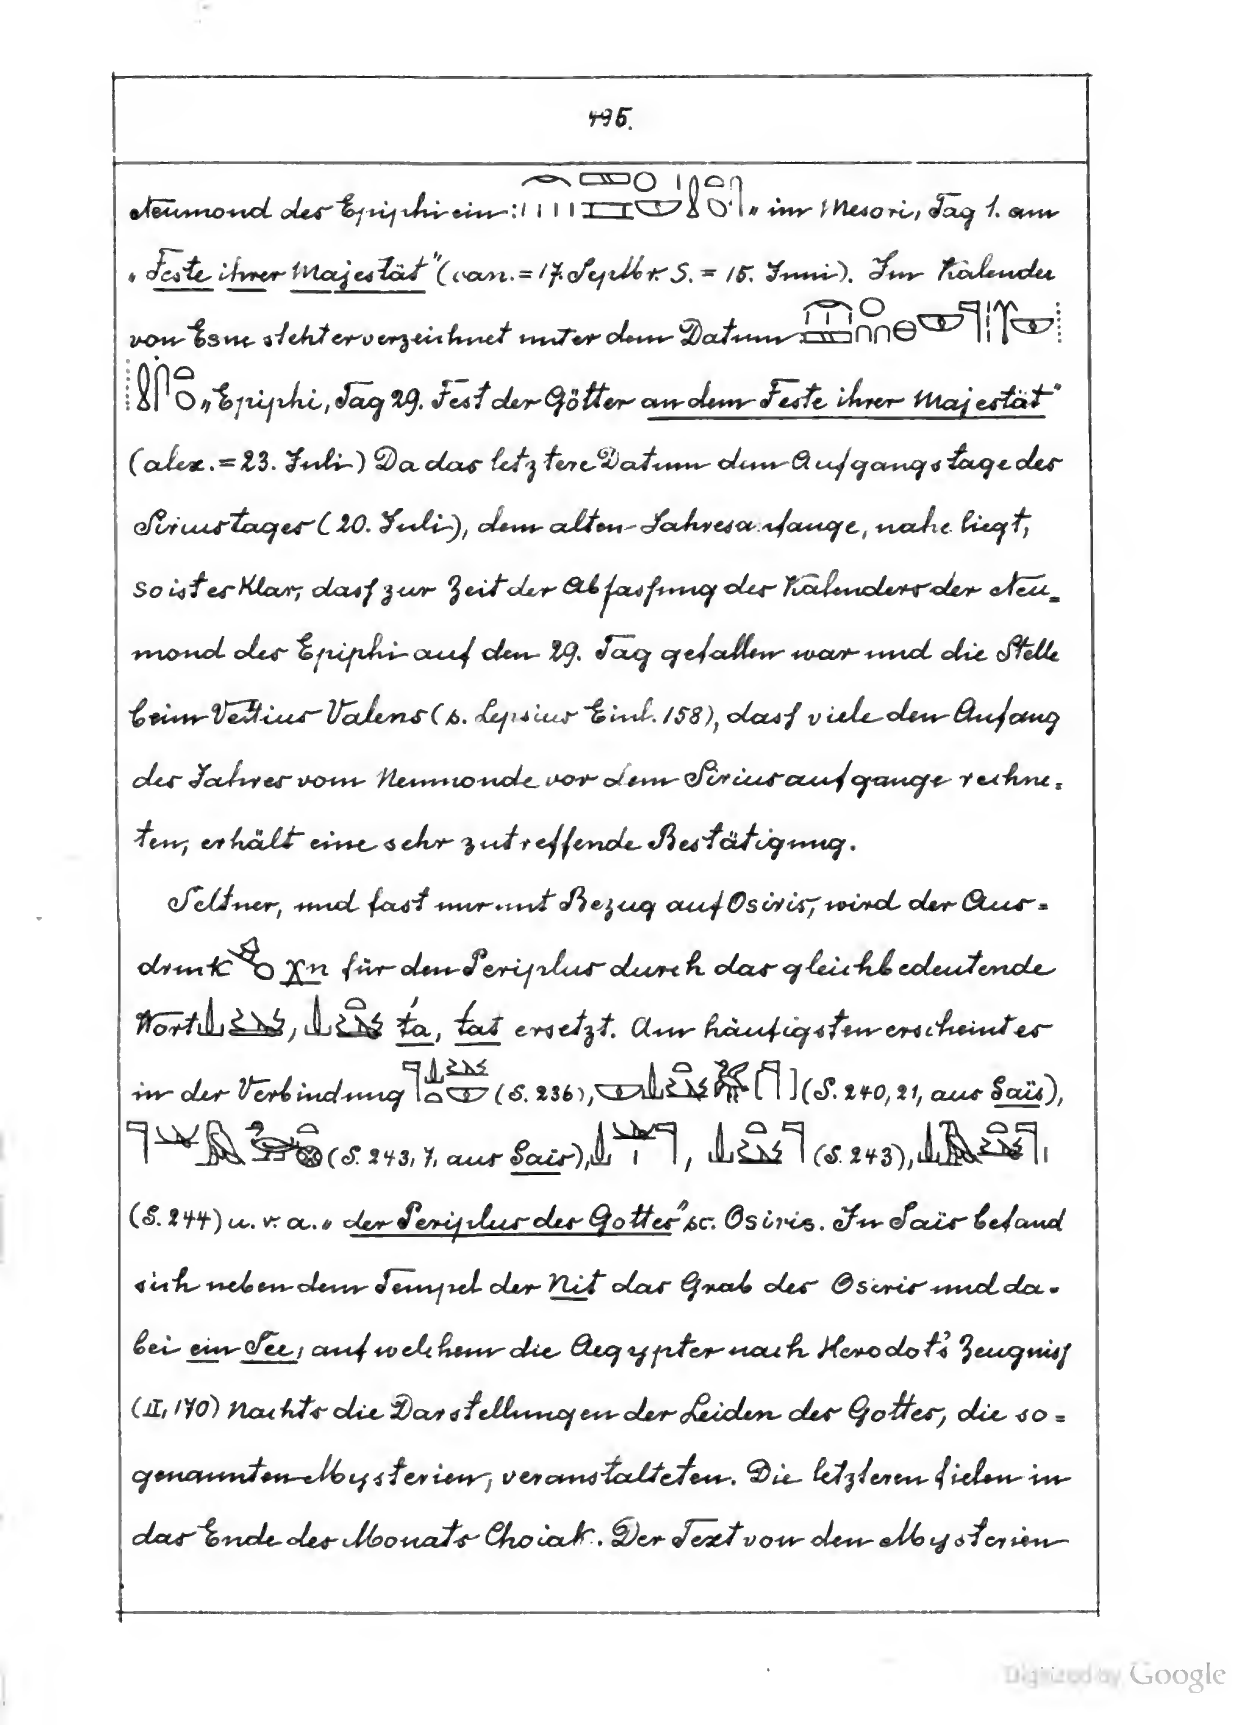 495.
Neumond des Epiphi ein: „im Mesori, Tag 1. am
„Feste ihrer Majestät" (van. = 17. Septbr. S. = 15. Juni). Im Kalender
von Esne steht er verzeichnet unter dem Datum
„Epiphi, Tag 29. Fest der Götter an dem Feste ihrer Majestät"
(alex. = 23. Juli) Da das letztere Datum dem Aufgangstage des
Siriustages (20. Juli), dem alten Jahresanfange, nahe liegt,
so ist es klar, dass zur Zeit der Abfassung des Kalenders der Neu=
mond des Epiphi auf den 29. Tag gefallen war und die Stelle
beim Vettius Valens (s. Lepsius Einl. 158), dass viele den Anfang
des Jahres vom Neumonde vor dem Siriusaufgange rechne=
ten, erhält eine sehr zutreffende Bestätigung.
Seltner, und fast nur mit Bezug auf Osiris, wird der Aus=
druck χn für den Periplus durch das gleichbedeutende
Wort , ta, tat ersetzt. Am häufigsten erscheint es
in der Verbindung (S. 236), ] (S. 240, 21, aus Saïs),
(S. 243, 7, aus Sais), , (S. 243),
(S. 244) u. v. a. „der Periplus des Gottes" sc. Osiris. In Saïs befand
sich neben dem Tempel der Nit das Grab des Osiris und da=
bei ein See, auf welchem die Aegypter nach Herodot's Zeugniss
(II, 170) Nachts die Darstellungen der Leiden des Gottes, die so=
genannten Mysterien, veranstalteten. Die letzteren fielen in
das Ende des Monats Choiak. Der Text von den Mysterien
Digitized by Google